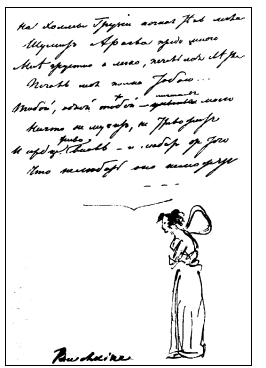 на холмы Грузии ночная
Шумит Арагва предо мною
Мне грустно и легко, печаль моя
Печаль моя полна Тобою...
Тобой, одной тобой — моего
Ничто не мучит, не тревожит
И сердце вновь — и любит от того
Что не любить оно не может
Pouchkine